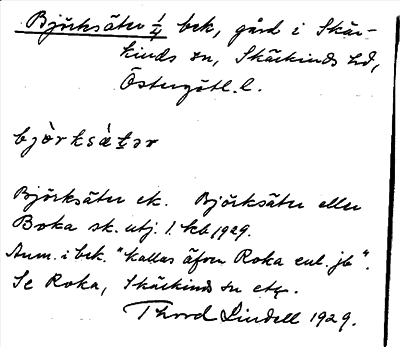 Björksäter 1/4 bek, gård i Skär-
kinds sn, Skärkinds hd,
Östergötl. l.
björksätər
Björksäter ek. Björksäter eller
Boka sk. utj. 1. kb, 1929.
Anm. i bek. "kallas äfven Roka enl. jb".
Se Roka, Skärkind sn etc.
Thord Lindell 1929.